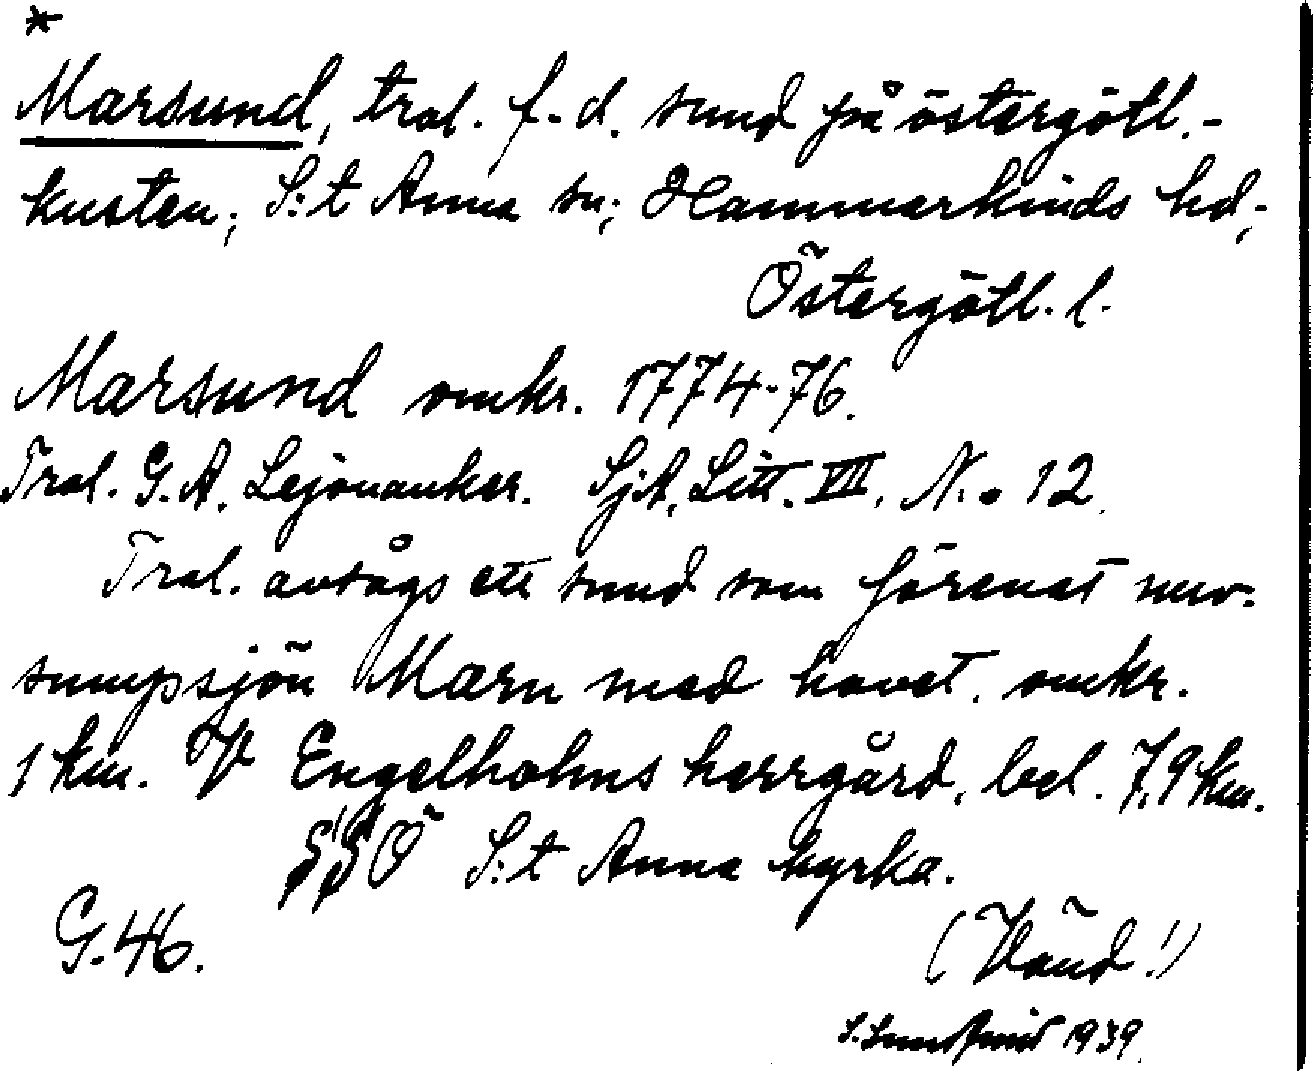 *
Marsund, trol. f.d. sund på östergötl.-
kusten; S:t Anna sn; Hammarkinds hd;
Östergötl. l.
Marsund omkr. 1774-76.
Trol. G.A. Lejonanker. SjA, Litt. VII, N.o 12.
Trol. avsågs ett sund som förenat nuv.
sumpsjön Marn med havet, omkr.
1 km. V Engelholms herrgård, bel. 7,9 km.
SSÖ S:t Anna kyrka.
G.46.
(Vänd!)
1939.